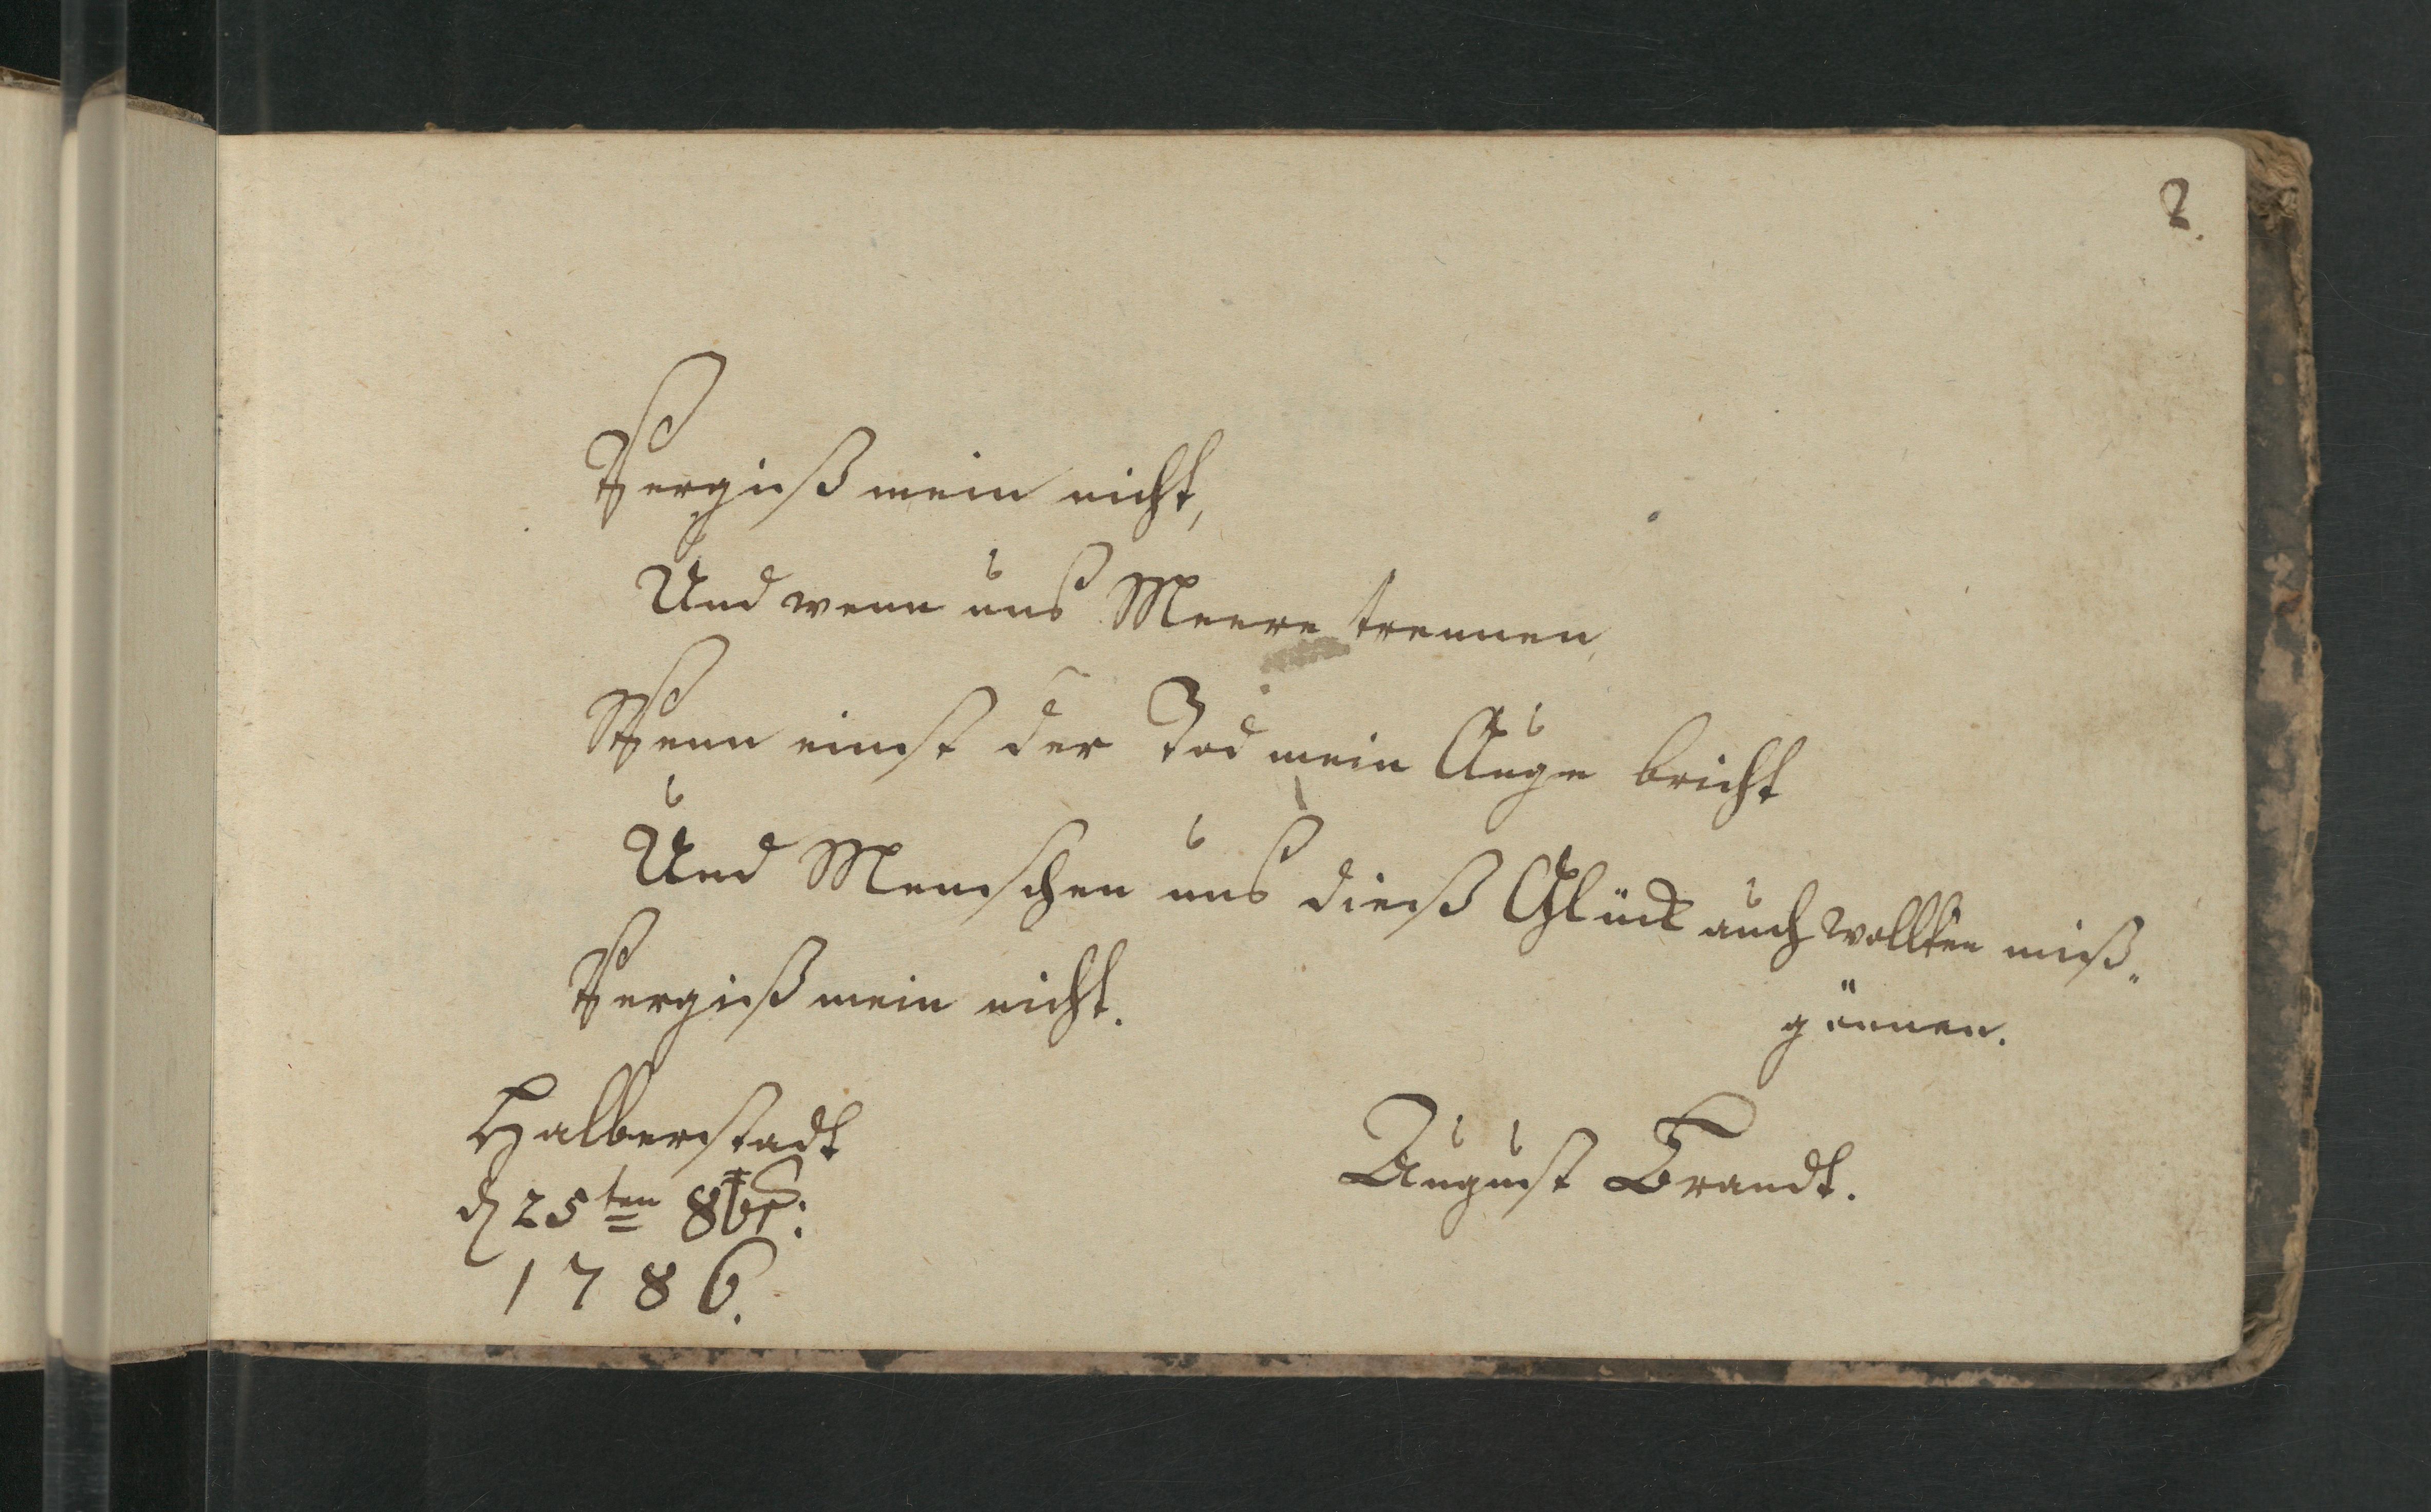 2.
Vergiß mein nicht,
Und wenn uns Meere trennen,
Wenn einst der Tod mein Auge bricht
Und Menschen uns dieß Glück auch wollten miß„
gönnen.
Vergiß mein nicht.
Halberstadt
d 25ten 8br:
1786.
August Brandt.